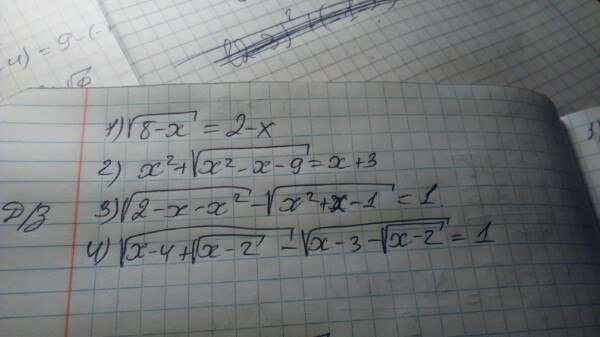 4) = 9-(-
1) √(8-x) = 2-x
2) x²+√(x²-x-9) = x+3
Д/З
3) √(2-x-x²) - √(x²+x-1) = 1
4) √(x-4+√(x-2)) - √(x-3-√(x-2)) = 1